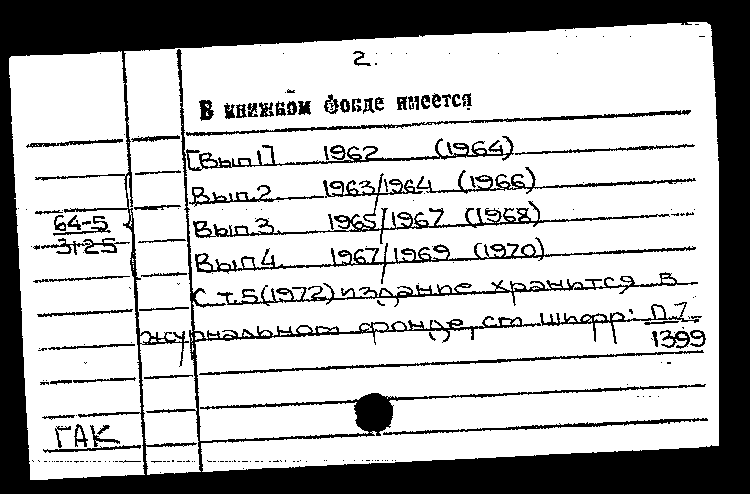 2.
В книжном фонде имеется
[Вып 1] 1962 (1964)
Вып.2. 1963/1964 (1966)
64-5
3125
Вып.3. 1965/1967 (1968)
Вып.4. 1967/1969 (1970)
С т.5(1972) издание хранится в
журнальном фонде, см шифр: П 7
1399
ГАК